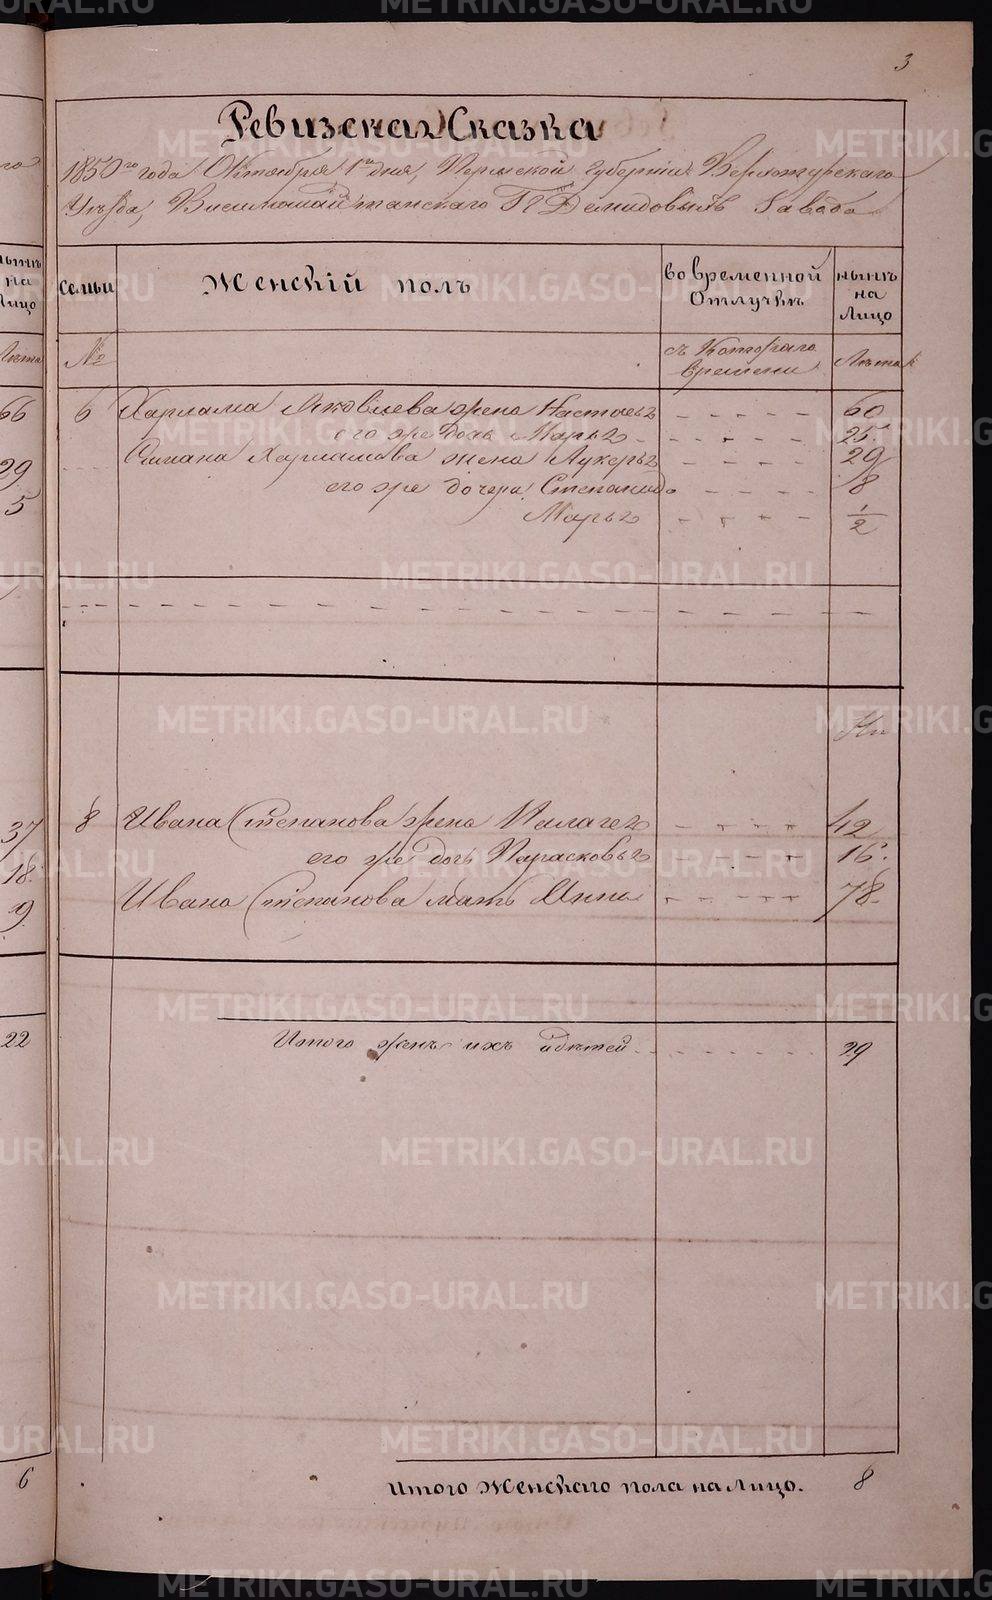 3
Ревизская Сказка
1850го года Октября 1го дня, Пермской губернии Верхотурскаго
Уѣзда, Висимошайтанскаго ГГ Демидовыхъ Завода
Семьи
Женскій полъ
во временной Отлучкѣ
нынѣ на Лицо
№
съ Котораго времени
Лѣта
6 Харлама Яковлева жена Настасья 60
его же дочь Марья 25.
Симана Харламова жена Лукерья 29
его же дочери Степанида 8
Марья 1/2
8 Ивана Степанова жена Палагея 42
его же дочь Парасковья 16.
Ивана Степанова мать Анна 78.
Итого женъ ихъ и дѣтей 29
Итого Женскаго пола на Лицо. 8
нынѣ
на
Лицо
Лѣта
66
29
5
37
18.
9
22
6
METRIKI.GASO-URAL.RU